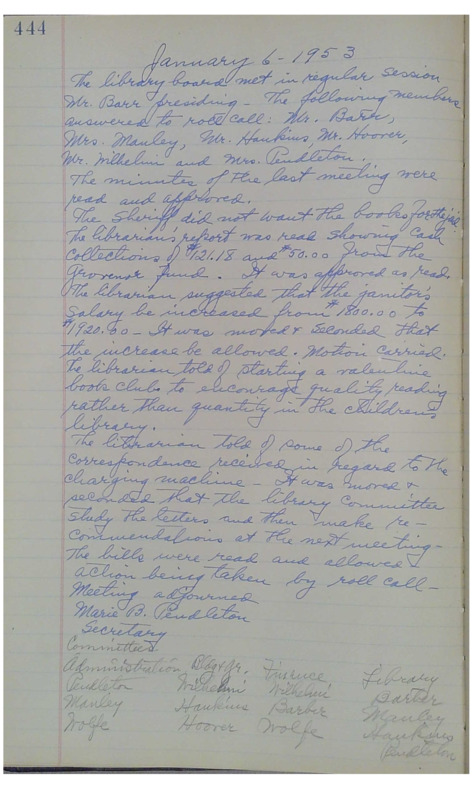 444
January 6 - 1953
The library board met in regular session
Mr. Barr presiding - The following members
answered to roll call: Mr. Barr,
Mrs. Manley, Mr. Hawkins, Mr. Hoover,
Mr. Wilhelmi and Mrs. Pendleton.
The minutes of the last meeting were
read and approved.
The Sheriff did not want the books for the jail.
The librarian's report was read showing cash
collections of $121.18 and $50.00 from the
fund. It was approved as read.
The librarian suggested that the janitor's
salary be increased from $1800.00 to
$1920.00 - It was moved & seconded that
the increase be allowed. Motion carried.
The librarian told of starting a valentine
book club to encourage quality reading
rather than quantity in the children's
library.
The librarian told of some of the
correspondence received in regard to the
charging machine - It was moved &
seconded that the library committee
study the letters and then make re-
commendations at the next meeting -
The bills were read and allowed
action being taken by roll call -
Meeting adjourned
Marie B. Pendleton
Secretary
Committees
Administration Bldg & Gr. Finance Library
Pendleton Wilhelmi Wilhelmi Barber
Manley Hawkins Barber Manley
Wolfe Hoover Wolfe Hawkins
Pendleton